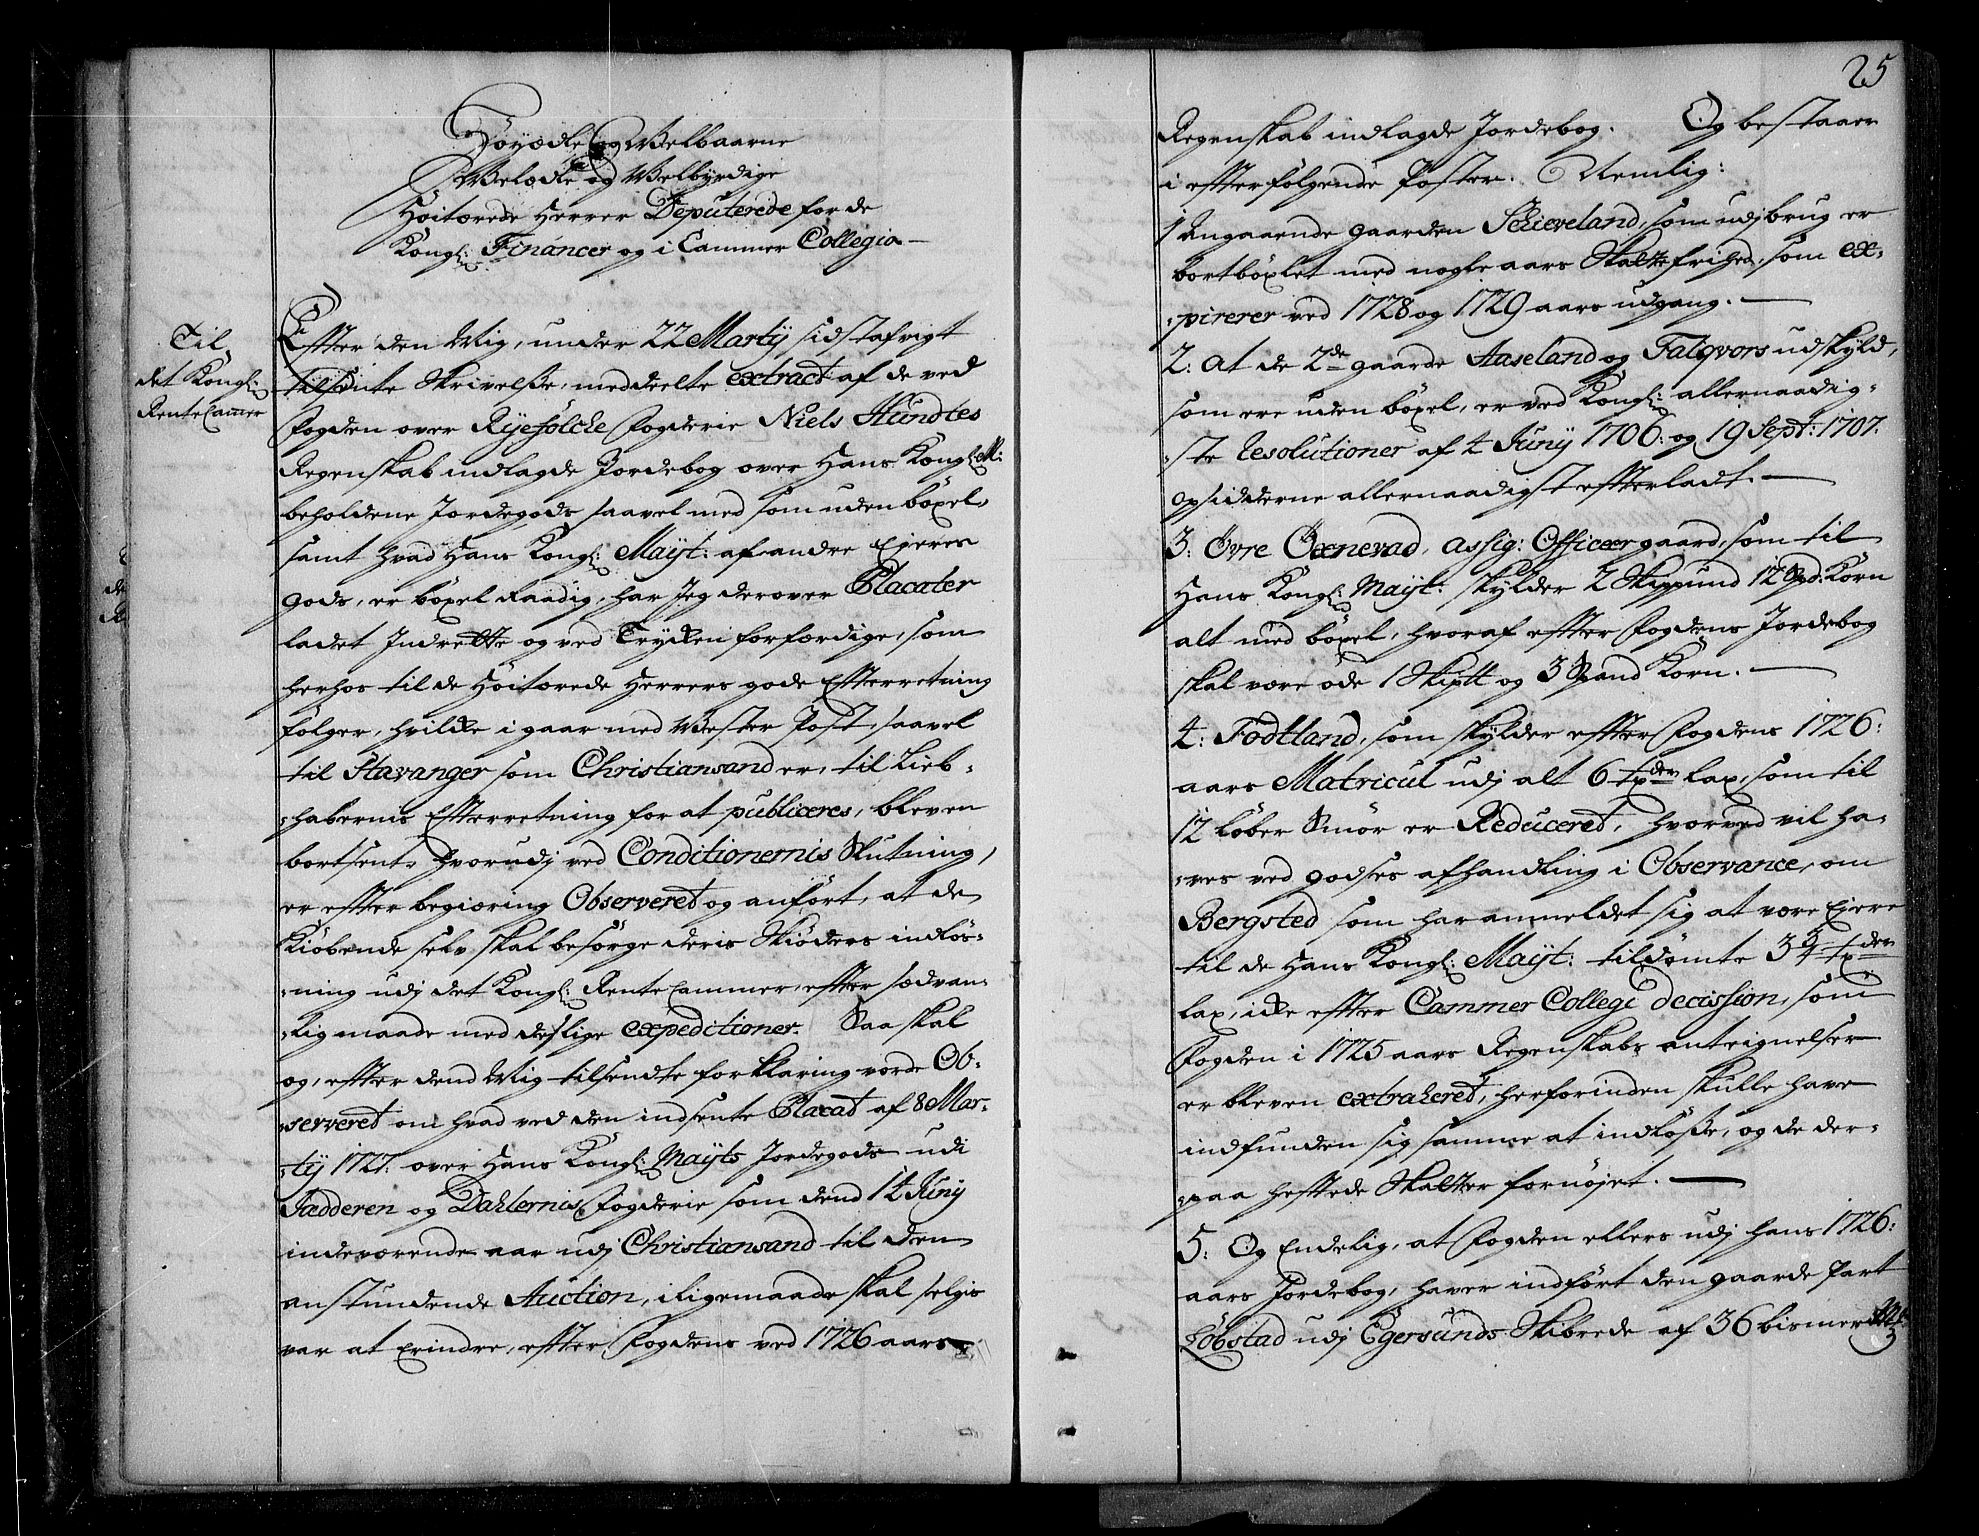 Høyædle og Welbaarne
Welædle og Welbÿrdige
Høitærede Herrer Deputerede for de
Kongl: Finåncer og i Cammer Collegia
Til
det Kongl:
RenteCamer
Effter den Mig, under 22 Martÿ sidstafvigt
tilsente Skrivelsse, meddeelte extract af de ved
Fogden over Rÿefølcke Fogderie Niels Hundtes
Regenskab indlagde Jordebog over Hans Kongl: M:
beholdene Jordegods saavel med som uden bøxel,
samt hvad Hans Kongl: Maÿt: af andre Ejeres
gods, er bøxel Raadig, har Jeg derover Placater
ladet Indrette og ved Trÿcken forfærdige, som
herhos til de Høitærede Herrers gode Effterretning
følger, hvilcke i gaar med Vester Post saavel
til Stavanger som Christiansand er, til Lieb-
-habernis Effterretning for at publiceres, bleven
bortsent, hvorudj ved Conditionernis Slutning,
er effter begiæring Observeret og anført, at de
Kiøbende selv skal besørge deris Skiøders indløs-
-ning udj det Kongl: RenteCammer, effter sædvan-
-lig maade med deslige expeditioner. Saa skal
og, effter dend Mig tilsendte forklaring vorde Ob-
-serveret om hvad ved den indsente Placat af 8 Mar-
-tÿ 1727: over Hans Kongl: Maÿts Jordegods udi
Jædderen og Dahlernis Fogderie som dend 14 Junÿ
indeværende aar udj Christiansand til den
anstundende Auction, i ligemaade skal selgis
var at erindre, effter Fogdens ved 1726 aars
25
Regenskab indlagde Jordebog. Og bestaaer
i effterfølgende Poster. Nemlig:
1 Angaaende gaarden Schieveland, som udj brug er
bortbøxlet med nogle aars Skattefrihed, som ex-
-pirerer ved 1728 og 1729 aars udgang.
2: At de 2de gaarde Aaseland og Faliqvors udskÿld,
som ere uden bøxel, er ved Kongl: allernaadig-
-ste Resolutioner af 4 Junÿ 1706: og 19 Sept: 1707:
opsidderne allernaadigst effterladt.
3: Øvre Oxnevad, assig: Officeer gaard, som til
Hans Kongl: Maÿt: skÿlder 2 Skippund 12 Spd: Korn
alt med bøxel, hvoraf effter Fogdens Jordebog
skal være øde 1 Skiptt og 3 Spand Korn.
4: Fodtland, som skÿlder effter Fogdens 1726:
aars Matricul udj alt 6 txder lax, som til
12 Løber Smør er Reduceret, hvorved vil ha-
-ves ved godses afhandling i Observance, om
Bergsted som har anmeldet sig at være Ejere
til de Hans Kongl: Maÿt: tildømte txder
lax, icke effter Cammer Collegi decission, som
Fogden i 1725 aars Regenskabs antegnelser
er bleven extraheret, herforinden skulle have
indfunden sig samme at indløsse, og de der-
-paa hefftede Skatter fornøjet.
5: Og Endelig, at Fogden ellers udj hans 1726:
aars Jordebog, haver indført den gaarde Part
Løbstad udj Egersunds Skibrede af 36 bismer